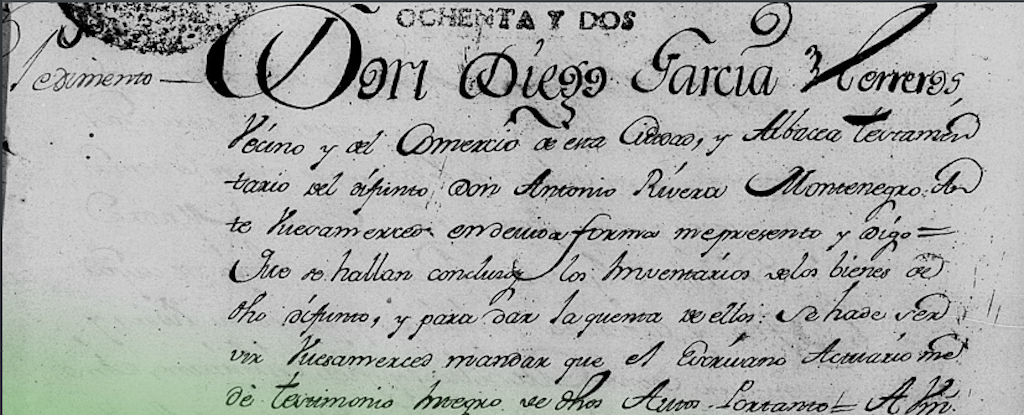 OCHENTA Y DOS
Pedimento — Don Diego Garcia Herreros
Vecino y del Comercio de esta Ciudad, y Albacea testamen
tario del difunto Don Antonio Rivera Montenegro. An
te Vuesamerced en devida forma me presento y digo =
Que se hallan conclusos los Inventarios de los bienes de
dho difunto, y para dar la quenta de ellos. Se hade ser
vir Vuesamerced mandar que el Escrivano Actuario me
dé testimonio Integro de dhos Autos Portanto = A Vm